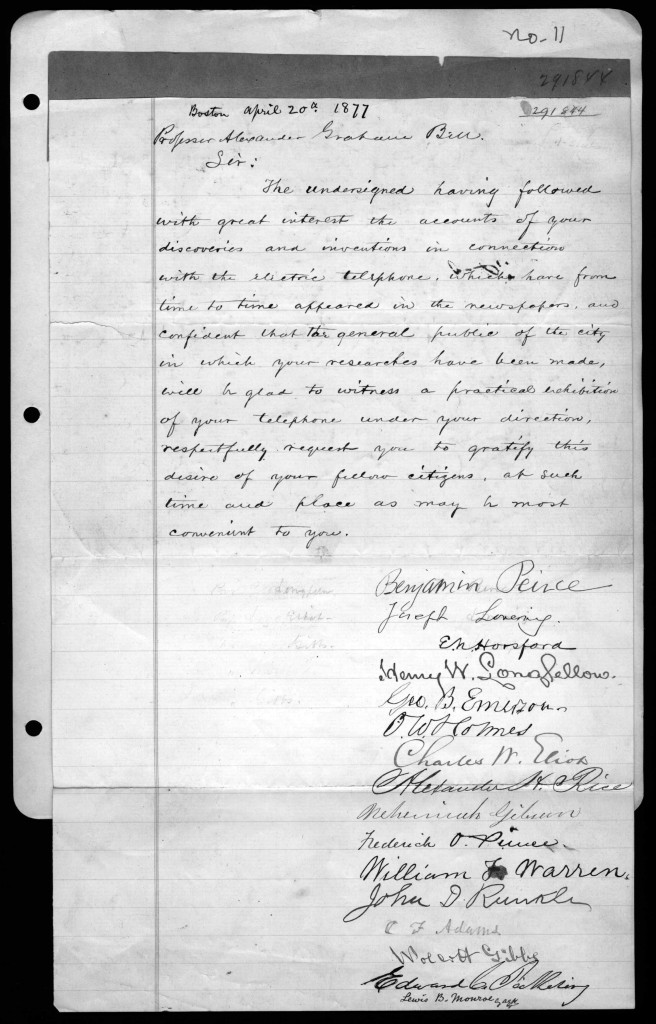 No. 11
291844
291844
Boston April 20th 1877
Professor Alexander Graham Bell.
Sir:
The undersigned having followed
with great interest the accounts of your
discoveries and inventions in connection
with the electric telephone, which have from
time to time appeared in the newspapers, and
confident that the general public of the city
in which your researches have been made,
will be glad to witness a practical exhibition
of your telephone under your direction,
respectfully request you to gratify this
desire of your fellow citizens, at such
time and place as may be most
convenient to you.
Benjamin Peirce
Joseph Lovering.
E.N. Horsford
Henry W. Longfellow.
Geo. B. Emerson.
O. W. Holmes
Charles W. Eliot
Alexander H. Rice
Nehemiah Gibson
Frederick O. Prince.
William F. Warren.
John D. Runkle
C F Adams
Wolcott Gibbs
Edward C. Pickering
Lewis B. Monroe